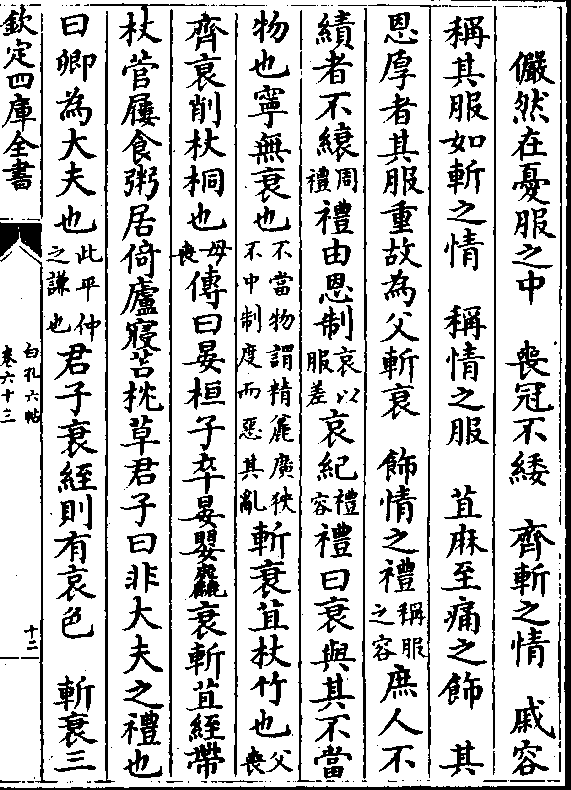 儼然在憂服之中　喪冠不緌　齊斬之情　戚容
稱其服如斬之情　稱情之服　苴麻至痛之飾　其
恩厚者其服重故為父斬衰　飾情之禮稱服之容庶人不
績者不縗周禮禮由恩制哀以服差哀紀禮容禮曰衰與其不當
物也寧無衰也不當物謂精麄廣狹不中制度而惡其亂斬衰苴杖竹也父喪
齊衰削杖桐也母喪傳曰晏桓子卒晏嬰麄衰斬苴絰帶
杖菅屨食粥居倚廬寢苫枕草君子曰非大夫之禮也
曰卿為大夫也此平仲之謙也君子衰絰則有哀色　斬衰三
欽定四庫全書
白孔六帖
卷六十三
十二